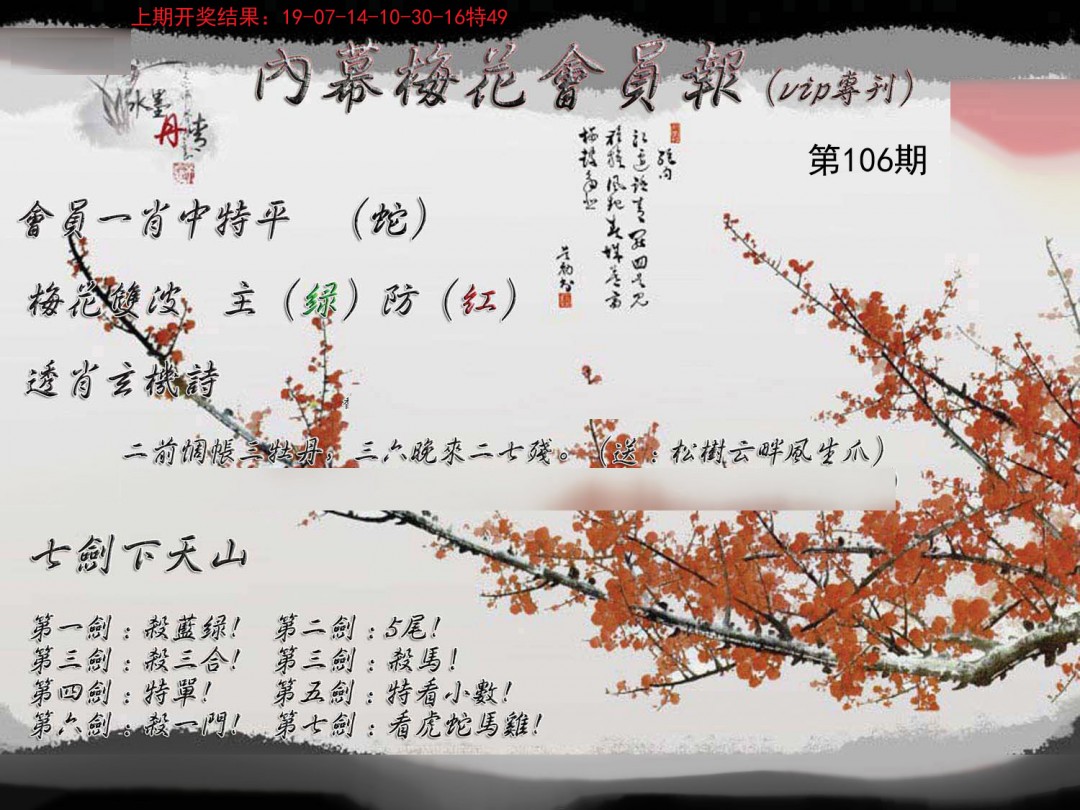 上期开奖结果：19-07-14-10-30-16特49
內幕梅花會員報（vip專刊）
水墨丹青
第106期
會員一肖中特平 （蛇）
梅花雙波 主（绿）防（红）
透肖玄機詩
二前惆悵三牡丹，三六晚來二七殘。（送：松樹云畔風生爪）
七劍下天山
第一劍：殺藍绿！ 第二劍：5尾！
第三劍：殺三合！ 第三劍：殺馬！
第四劍：特單！ 第五劍：特看小數！
第六劍：殺一門！ 第七劍：看虎蛇馬雞！